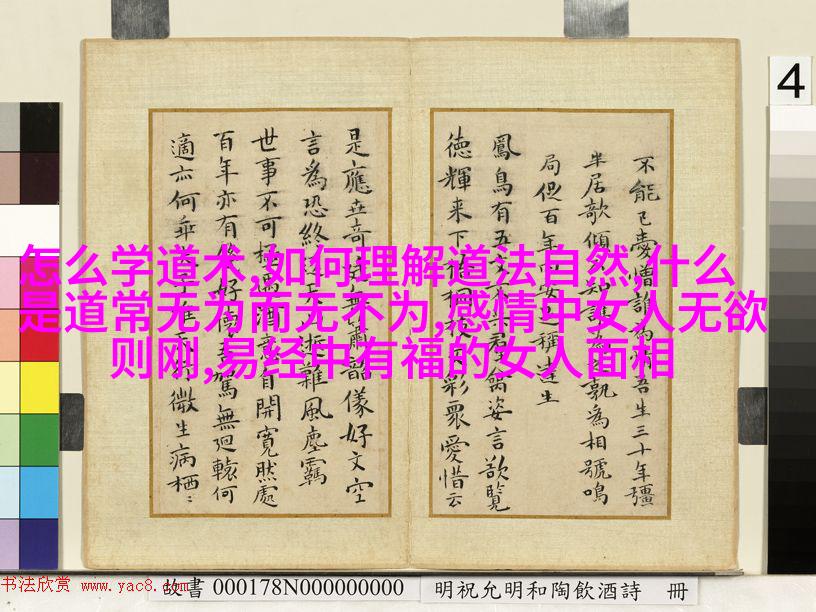 4
怎么学道术,如何理解道法自然,什么
是道常无为而无不为,感情中女人无欲
则刚,易经中有福的女人面相
不能已憎為吾生三十年殭
半居欹傾孰為相號鳴
局促百年稱達生
鳳鳥有五文姿言欲覽
德輝来下彩眾愛惜云
是應奇韶儀好文空
言為恐終逝難風塵羈
世事不可極酒自開寬然處
百年亦有好駕無迴轅何
適亦何垂微生病栖〻
书法欣赏 www.yac8.com
故書 000178N000000000
明祝允明和陶飲酒詩 冊